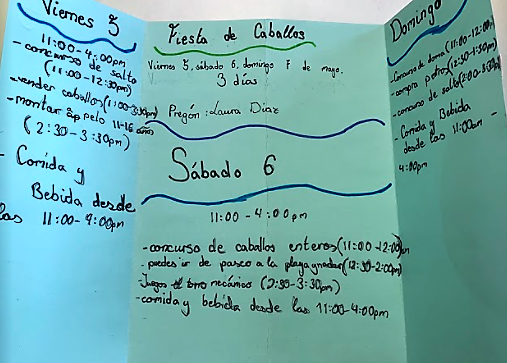 Viernes 5
11:00-4:00pm
- concurso de salto
(11:00-12:30pm)
- vender caballos (1:00-
- montar a pelo 11-16 años
(2:30-3:30pm)
- Comida y
Bebida desde
las 11:00-4:00pm
Fiesta de Caballos
Viernes 5, sábado 6, domingo 7 de mayo.
3 días
Pregón: Laura Diaz
Sábado 6
11:00-4:00pm
- concurso de caballos enteros (11:00-12:00pm
- puedes ir de paseo a la playa (12:30-2:00pm)
- Juegos toro mecánico (2:30-3:30pm)
- comida y bebida desde las 11:00-4:00pm
Domingo
- concurso de doma (11:00-12:00pm
- compra potros (12:30-1:30pm)
- concurso de salto (2:00-3:30pm)
- Comida y Bebida
desde las 11:00am -
4:00pm